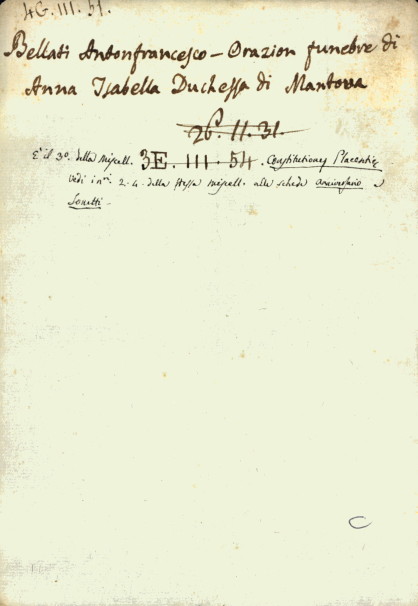 4G. III. 51.
Bellati Antonfrancesco - Orazion funebre di
Anna Isabella Duchessa di Mantova
26. 11. 31.
È il 3º. della miscell. 3E. III. 54. Constitutiones Placentiæ
vedi i nri. 2. 4. della stessa miscell. alle schede anniversario e
Sonetti -
C